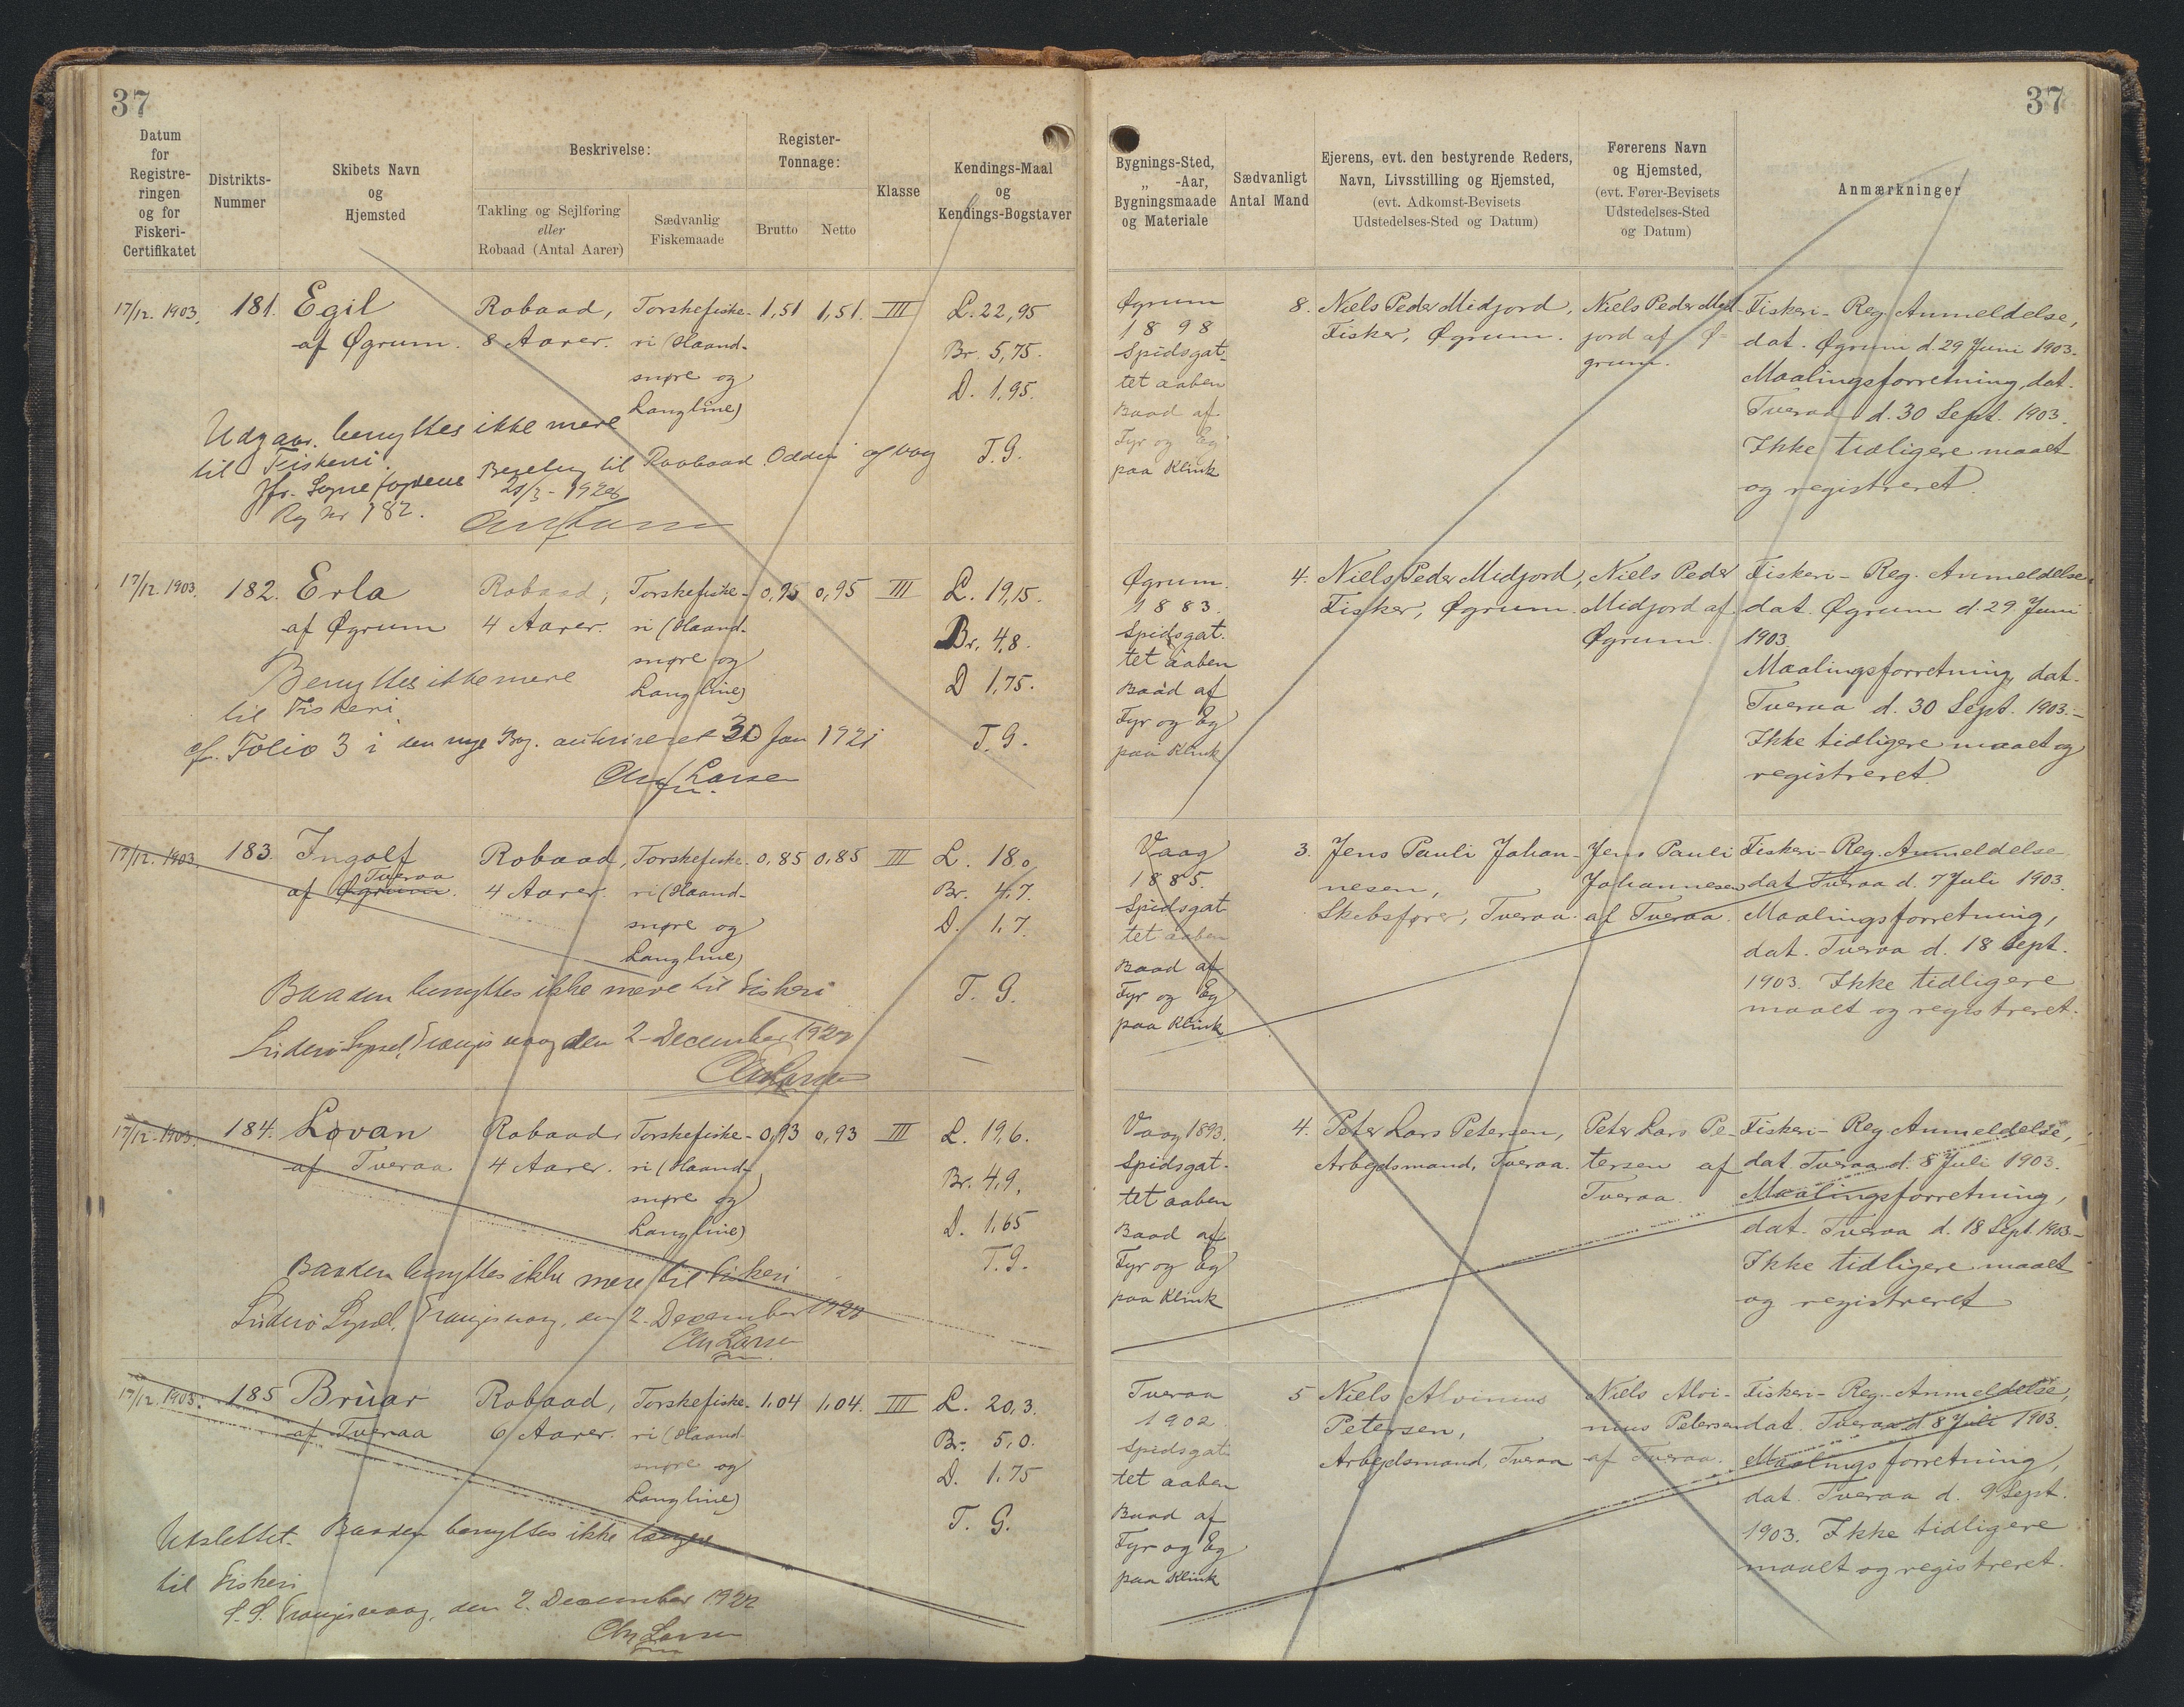 37
37
Datum
for
Registre-
ringen
og for
Fiskeri-
Certifikatet
Distrikts-
Nummer
Skibets Navn
og
Hjemsted
Beskrivelse:
Takling og Sejlføring
eller
Robaad (Antal Aarer)
Sædvanlig
Fiskemaade
Register-
Tonnage:
Brutto
Netto
Klasse
Kendings-Maal
og
Kendings-Bogstaver
Bygnings-Sted,
„ -Aar,
Bygningsmaade
og Materiale
Sædvanligt
Antal Mand
Ejerens, evt. den bestyrende Reders,
Navn, Livsstilling og Hjemsted,
(evt. Adkomst-Bevisets
Udstedelses-Sted og Datum)
Førerens Navn
og Hjemsted,
(evt. Fører-Bevisets
Udstedelses-Sted
og Datum)
Anmærkninger
17/12. 1903.
181.
Egil
af Øgrum.
Robaad,
8 Aarer.
Torskefiske-
ri (Haand-
snøre og
Langline)
1,51
1,51.
III
L. 22,95
Br. 5,75.
D. 1,95.
T. G.
Udgaar. benyttes ikke mere
til Fiskeri.
Jfr. Sognefogdens
Reg Nr 182.
Øgrum
1898
Spidsgat-
tet aaben
Baad af
Fyr og Eg
paa Klink
8.
Niels Peder Midjord,
Fisker, Øgrum.
Niels Peder Mid-
jord af Ø-
grum.
Fiskeri-Reg. Anmeldelse,
dat. Øgrum d. 29 Juni 1903.
Maalingsforretning, dat.
Tveraa d. 30 Sept. 1903.
Ikke tidligere maalt
og registreret.
17/12. 1903.
182.
Erla
af Øgrum
Robaad,
4 Aarer.
Torskefiske-
ri (Haand-
snøre og
Langline)
0,95
0,95
III
L. 19,15.
Br. 4,8.
D 1,75.
T. G.
Benyttes ikke mere
til Fiskeri.
cfr. Folio 3 i den nye Bog. autoriseret 30 Jan 1921
Chr Larsen
Øgrum.
1883.
Spidsgat-
tet aaben
Baad af
Fyr og Eg
paa Klink
4.
Niels Peder Midjord,
Fisker, Øgrum.
Niels Peder
Midjord af
Øgrum.
Fiskeri-Reg. Anmeldelse
dat. Øgrum d. 29 Juni
1903.
Maalingsforretning, dat.
Tveraa d. 30 Sept. 1903.-
Ikke tidligere maalt og
registreret.
17/12. 1903.
183.
Ingolf
Tveraa
af Øgrum.
Robaad,
4 Aarer.
Torskefiske-
ri (Haand-
snøre og
Langline)
0,85
0,85
III
L. 18,0
Br. 4,7.
D. 1,7.
T. G.
Baaden benyttes ikke mere til Fiskeri
Suderø Syssel, Trangisvaag den 2 December 1922
Chr Larsen
Vaag
1885.
Spidsgat-
tet aaben
Baad af
Fyr og Eg
paa Klink
3.
Jens Pauli Johan-
nesen,
Skibsfører, Tveraa.
Jens Pauli
Johannesen
af Tveraa.
Fiskeri-Reg. Anmeldelse
dat. Tveraa d. 7 Juli 1903.
Maalingsforretning,
dat. Tveraa d. 18 Sept.
1903. Ikke tidligere
maalt og registreret.
17/12. 1903.
184.
Løvan
af Tveraa
Robaad,
4 Aarer.
Torskefiske-
ri (Haand-
snøre og
Langline)
0,93
0,93
III
L. 19,6.
Br. 4,9.
D. 1,65
T. G.
Baaden benyttes ikke mere til Fiskeri
Suderø Syssel, Trangisvaag, den 2. December 1922
Chr Larsen
Vaag 1893.
Spidsgat-
tet aaben
Baad af
Fyr og Eg
paa Klink
4.
Peter Lars Petersen,
Arbejdsmand, Tveraa.
Peter Lars Pe-
tersen af
Tveraa.
Fiskeri-Reg. Anmeldelse,
dat. Tveraa d. 8 Juli 1903.
Maalingsforretning,
dat. Tveraa d. 18 Sept. 1903.-
Ikke tidligere maalt
og registreret
17/12. 1903.
185
Brùar
af Tveraa
Robaad,
6 Aarer.
Torskefiske-
ri (Haand-
snøre og
Langline)
1,04
1,04.
III
L. 20,3.
Br. 5,0.
D. 1,75
T. G.
Udslettet. Baaden benyttes ikke længer
til Fiskeri
S. S. Trangisvaag, den 2. December 1922
Chr Larsen
Tveraa
1902.
Spidsgat-
tet aaben
Baad af
Fyr og Eg
paa Klink
5
Niels Alvinius
Petersen,
Arbejdsmand, Tveraa
Niels Alvi-
nius Petersen
af Tveraa.
Fiskeri-Reg. Anmeldelse,
dat. Tveraa d. 8 Juli 1903.
Maalingsforretning,
dat. Tveraa d. 9 Sept.
1903. Ikke tidligere
maalt og registreret.